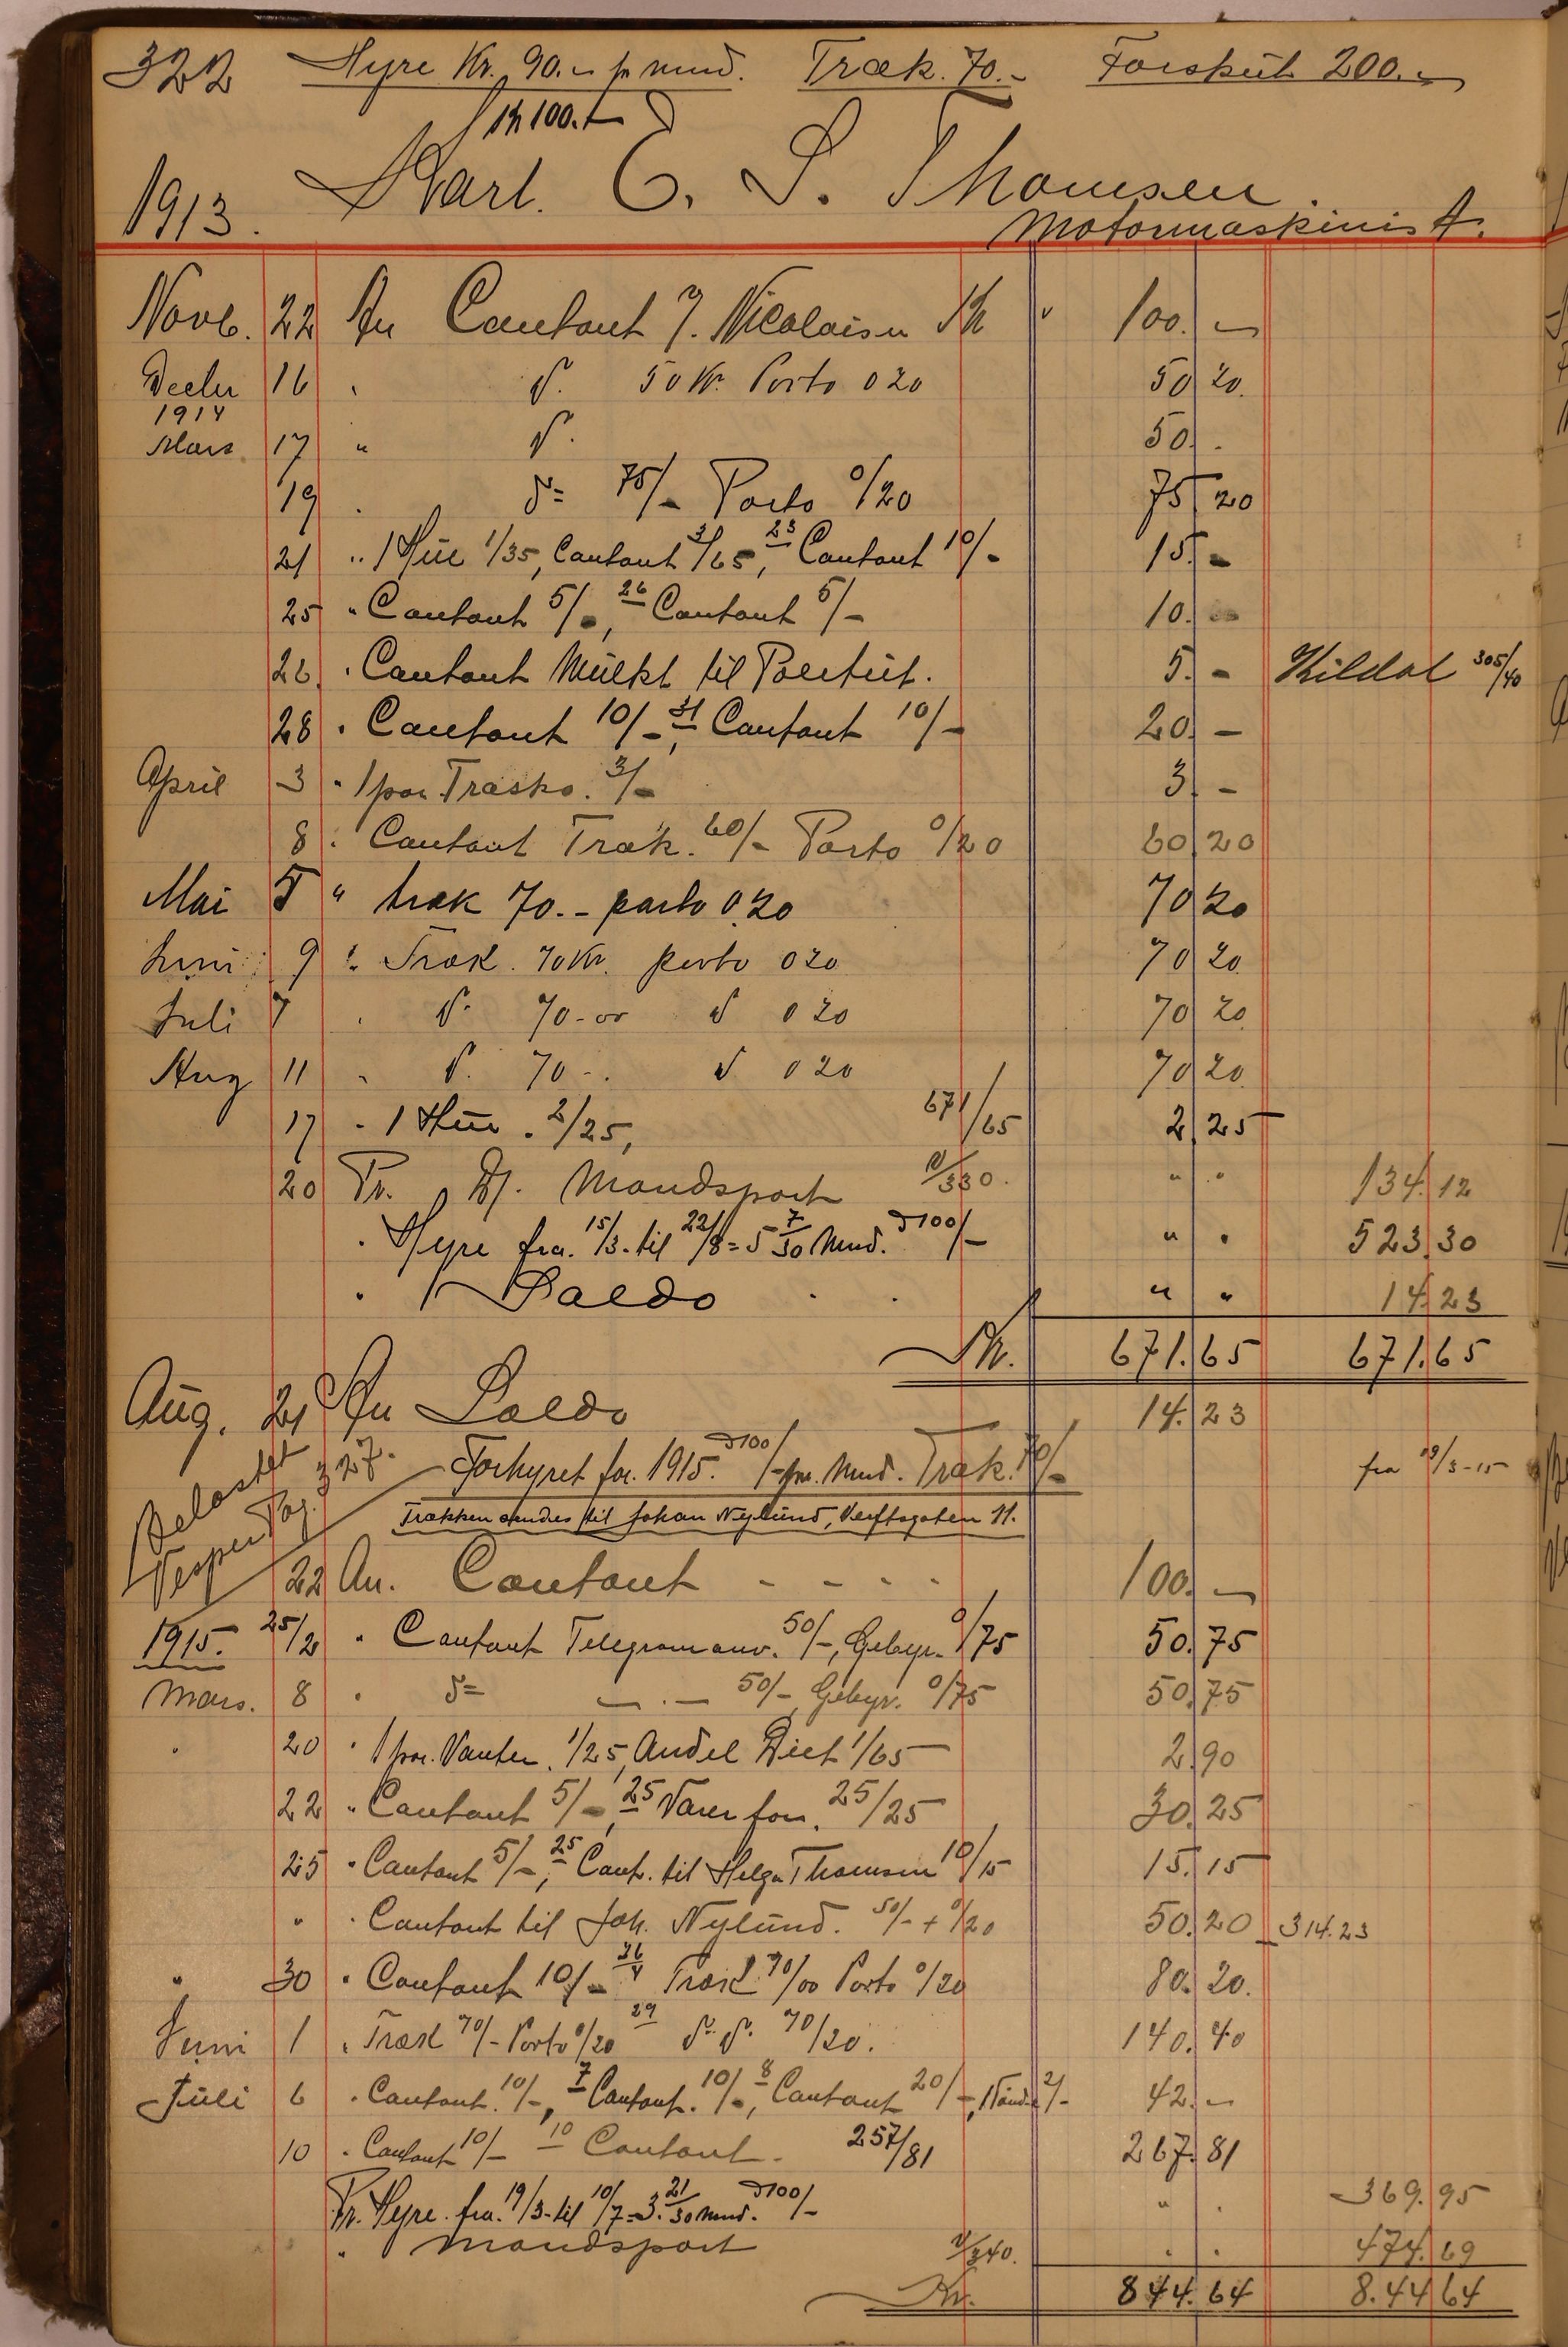 322 Hyre Kr. 90.- pr mnd. Træk. 70.- Forsküt 200.-
Kr 100.-
Karl. E. S. Thomsen.
1913. Motormaskinist.
Novb. 22 An Contant J. Nicolaisen Kr " 100. -
Decbr 16 " d. 50 Kr. Porto 020 50 20.
1914
Mars 17 " d. 50. -
19 . do= 75/- Porto 0/20 75 20
21 " 1 Hüe 1/35, Contant 3/65, 23 Contant 10/- 15. -
25 " Contant 5/-, 26 Contant 5/- 10. -
26. " Contant Mülkt til Politiet. 5. - Kildal 305/40
28 " Contant 10/- 31, Contant 10/- 20. -
April 3 " 1 par Træsko. 3/- 3. -
8 " Contant Træk. 60/- Porto 0/20 60 20
Mai 5 " træk 70.- porto 0.20 70 20
Juni 9 " Træk. 70 Kr. porto 020 70 20
Juli 7 " d. 70-00 d 020 70 20
Aug 11 " d. 70-. d 020 70 20
17 " 1 Hüe. 2/25, 671/65 2 25
20 Pr. Df. Mandsport 330. " " 134. 12
" Hyre fra. 15/3. til 22/8 = 5 7/30 Mnd. à 100/- " . 523. 30
" Saldo . . " " 14. 23
Kr. 671. 65 671. 65
Aug. 21 An Saldo 14. 23
Belastet Vesper Pag. 327. Forhyret for. 1915. à 100/- pr. Mnd. Træk. 70/- fra 19/3-15
Trækken sendes til Johan Nylünd, Verftsgaten 11.
22 An. Contant - - - - 100. -
1915. 25/2 " Contant Telegramanv. 50/-, Gebyr. 0/75 50. 75
Mars. 8 " do= - . - 50/-, Gebyr. 0/75 50. 75
" 20 " 1 par. Vanter. 1/25, Andel Diet 1/65 2. 90
22 " Contant 5/-, 25 Varer for. 25/25 30. 25
25 " Contant 5/-, 25 Cont. til Helga Thomsen 10/15 15. 15
" " Contant til Joh. Nylünd. 50/- + 0/20 50. 20 314.23
" 30 " Contant 10/- 26/4 Træk 70/00 Porto 0/20 80. 20.
Juni 1 " Træk 70/- Porto 0/20 29 d. d. 70/20. 140. 40
Juli 6 " Contant. 10/-, 7 Contant. 10/-, 8 Contant 20/-, 2/- 42. -
10 " Contant 10/- 10 Contant. 257/81 267. 81
Pr. Hyre. fra. 19/3. til 10/7 = 3. 21/30 Mnd. à 100/- " . 369. 95
" Mandsport 340. . . 474. 69
Kr. 844. 64 8.44 64